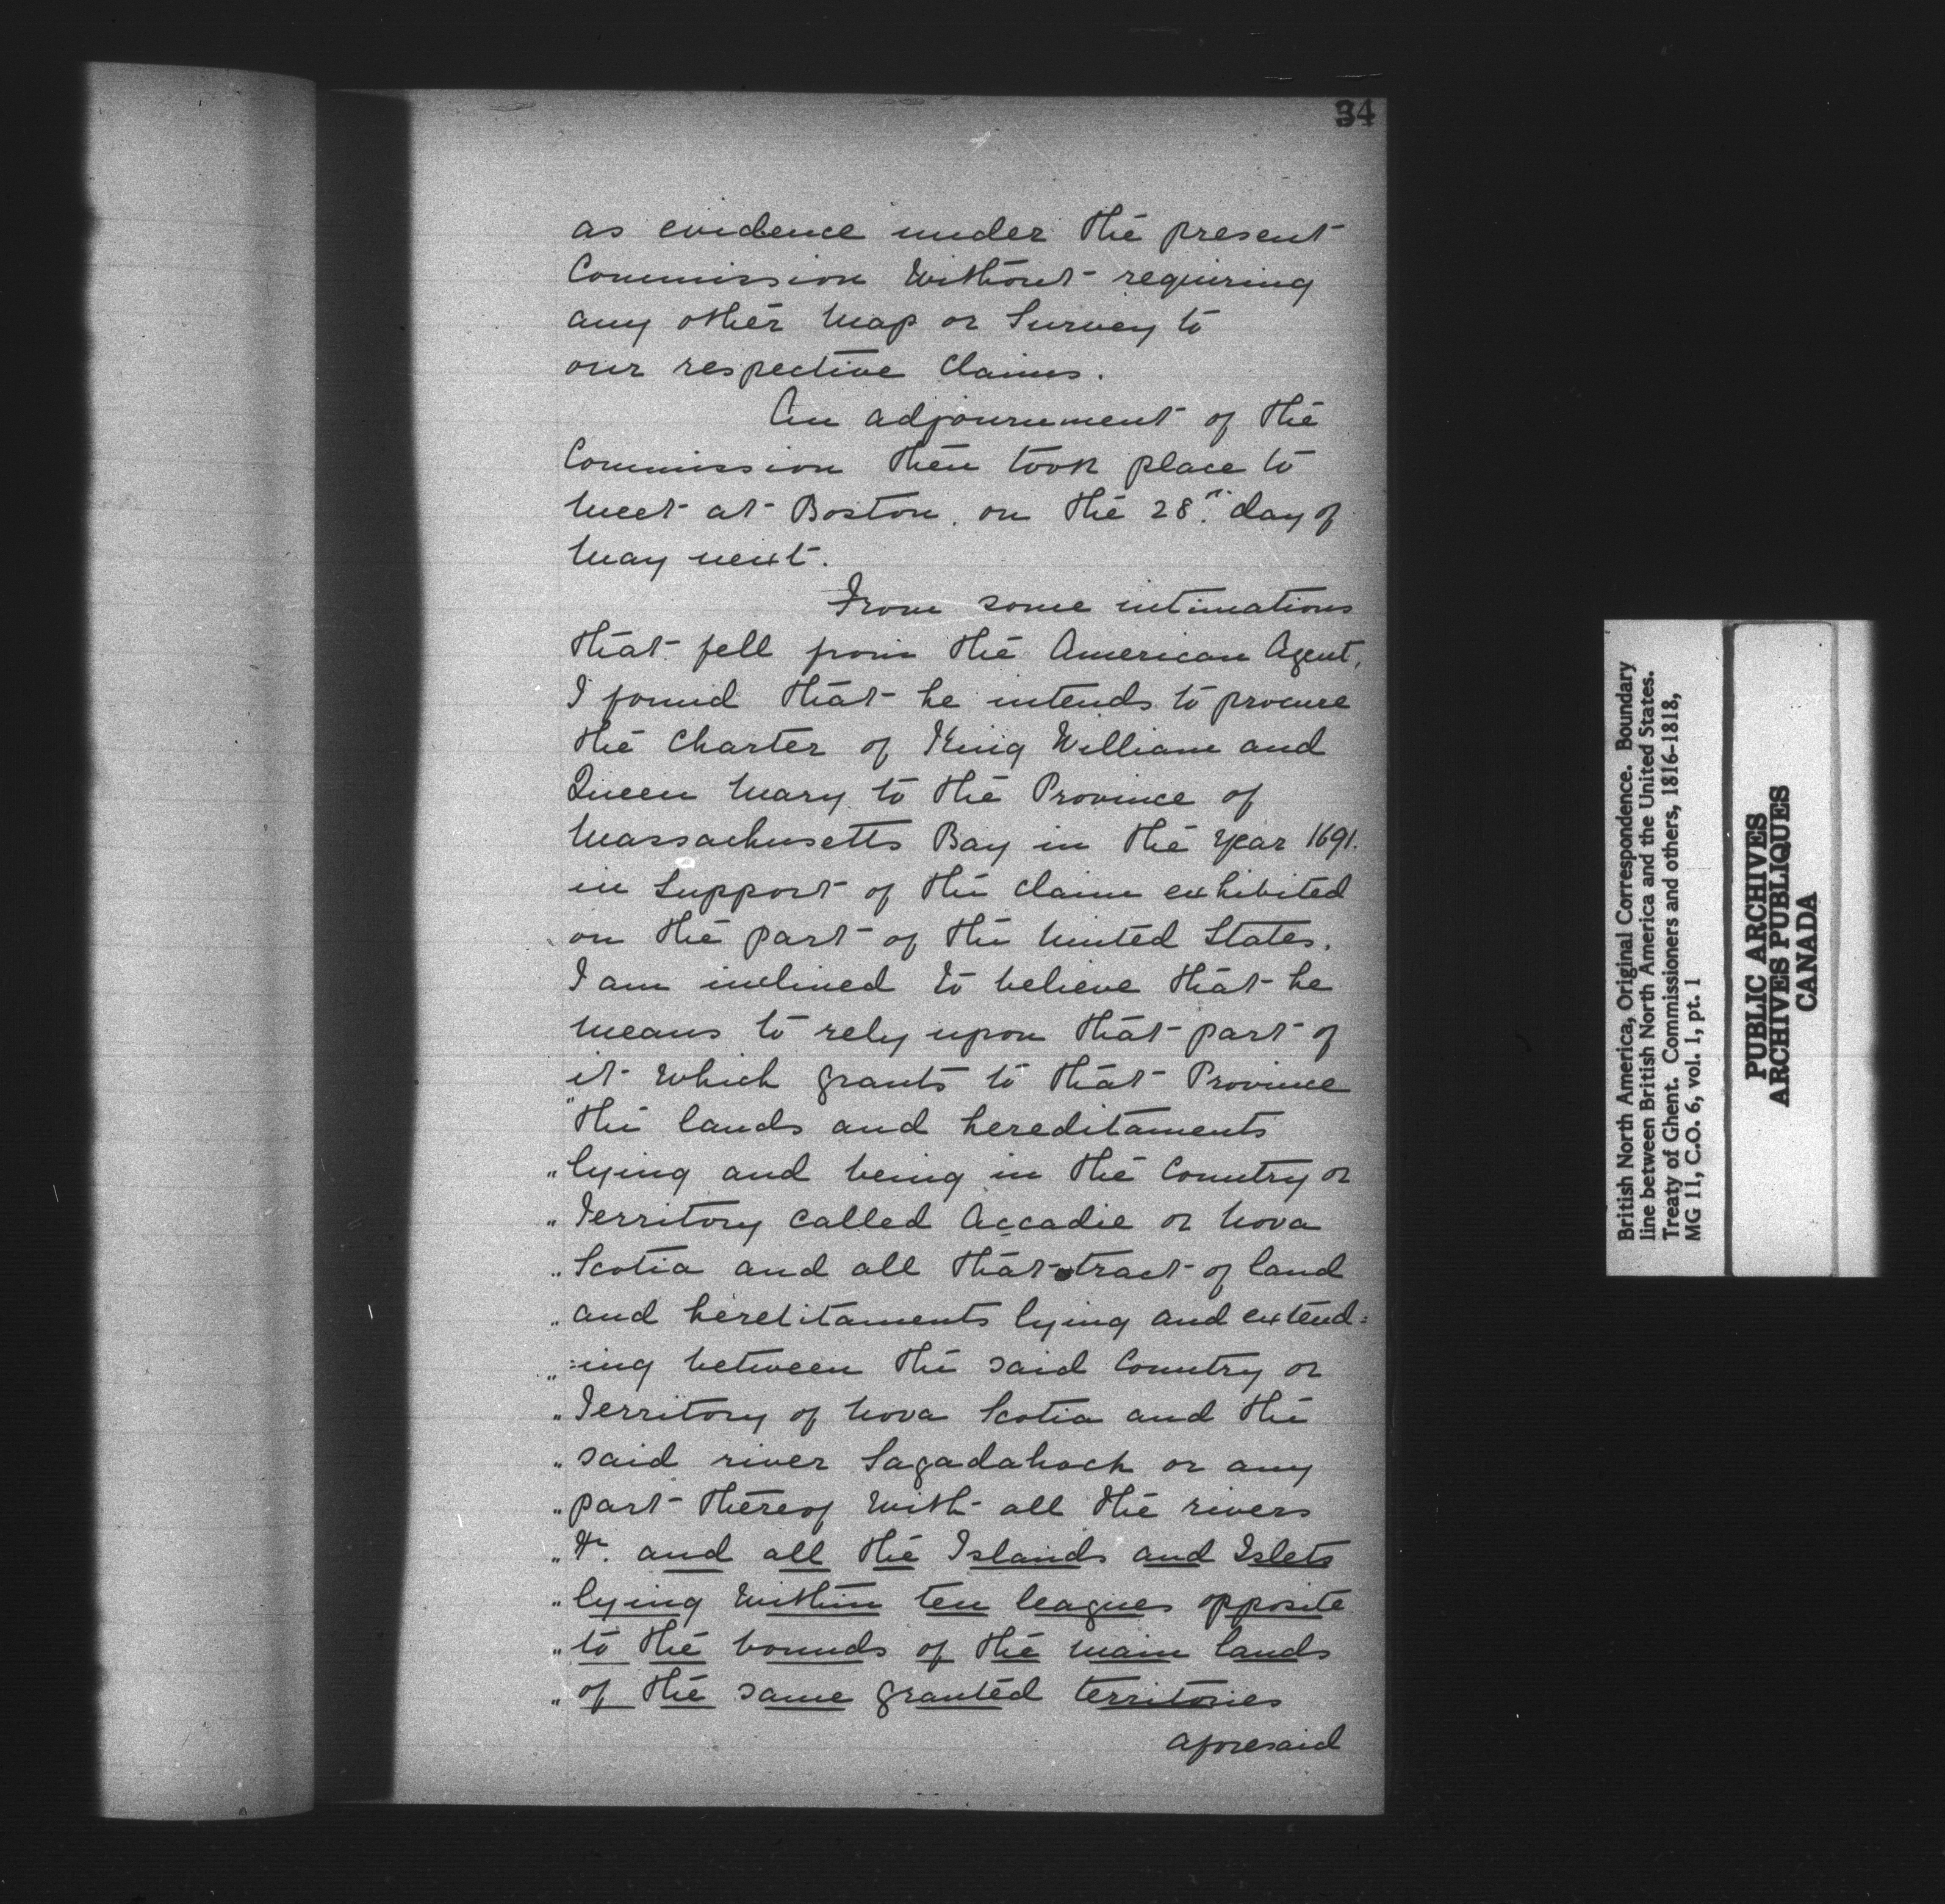 34
as evidence under the present
Commission without requiring
any other Map or Survey to
our respective Claims.
An adjournment of the
Commission then took place to
meet at Boston, on the 28th day of
May next.
From some intimations
that fell from the American Agent,
I found that he intends to procure
the Charter of King William and
Queen Mary to the Province of
Massachusetts Bay in the year 1691.
in support of the claim exhibited
on the part of the United States.
I am inclined to believe that he
means to rely upon that part of
it which grants to that Province
"the lands and hereditaments
"lying and being in the Country or
"Territory called Accadie or Nova
"Scotia and all that tract of land
"and hereditaments lying and extend=
"=ing between the said Country or
"Territory of Nova Scotia and the
"said river Sagadahock or any
"part thereof with all the rivers
"&c. and all the Islands and Islets
"lying within ten leagues opposite
"to the bounds of the main lands
"of the same granted territories
aforesaid
British North America, Original Correspondence. Boundary
line between British North America and the United States.
Treaty of Ghent. Commissioners and others, 1816-1818,
MG 11, C.O. 6, vol. 1, pt. 1
PUBLIC ARCHIVES
ARCHIVES PUBLIQUES
CANADA